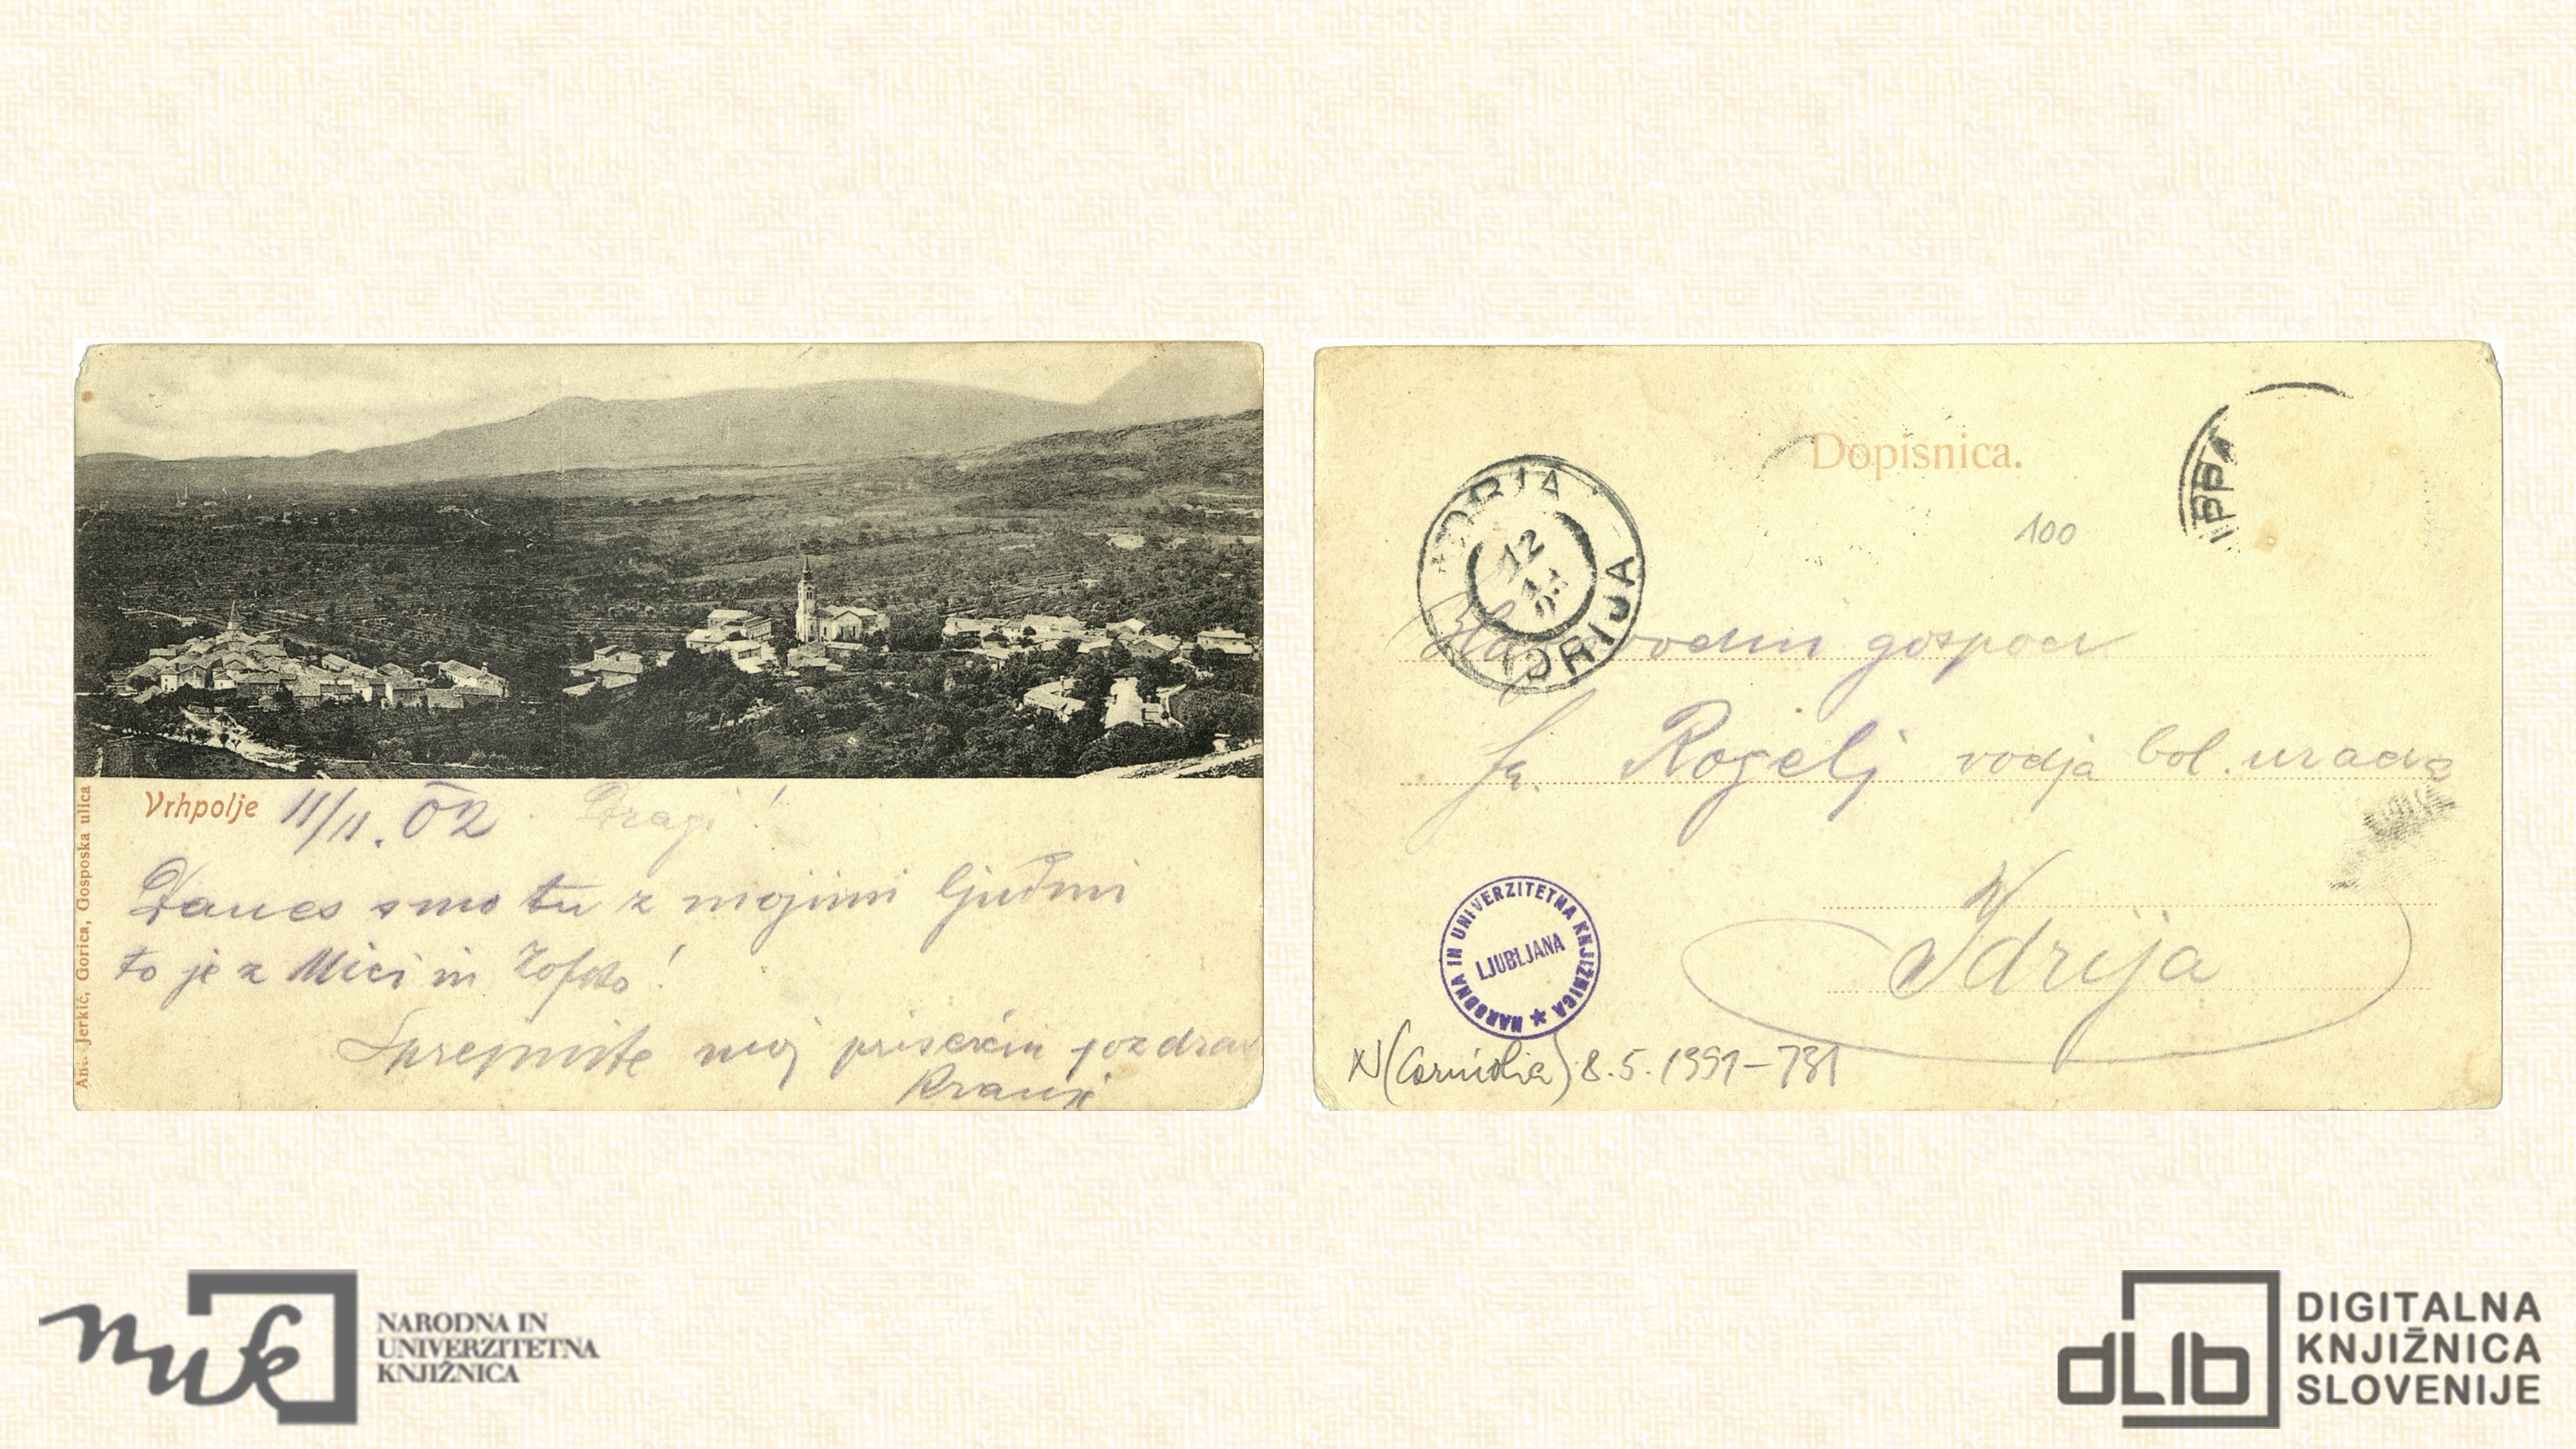 Vrhpolje 11/11. 02. Dragi!
Danes smo tu z mojimi ljudmi
to je z Mici in Zofko!
Sprejmite moj prisrčen pozdrav
Ant. Jerkič, Gorica, Gosposka ulica
Dopisnica.
100
IDRIA
12
IDRIJA
PPA
gospod
fr. Rogelj vodja bol. urada
V
Idrija
NARODNA IN UNIVERZITETNA KNJIŽNICA ★
LJUBLJANA
N (Carniolia) 8.5.1991-731
nuk
NARODNA IN
UNIVERZITETNA
KNJIŽNICA
dLib
DIGITALNA
KNJIŽNICA
SLOVENIJE